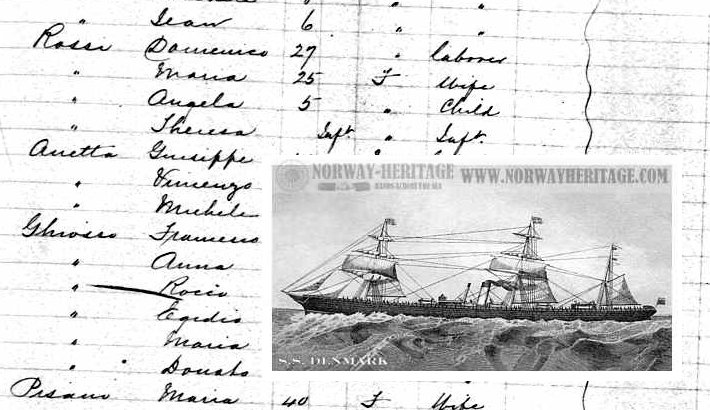 " Jean 6 " "
Rossi Domenico 27 " laborer
" Maria 25 F Wife
" Angela 5 " Child
" Theresa Inft " Inft.
Anetta Guiseppe
" Vincenzo
" Michele
Ghiosso Francesco
" Anna
" Rocco
" Egidio
" Maria
" " Donato
Pisano Maria 40 F Wife
NORWAY-HERITAGE
HANDS ACROSS THE SEA
WWW.NORWAYHERITAGE.COM
S.S. DENMARK